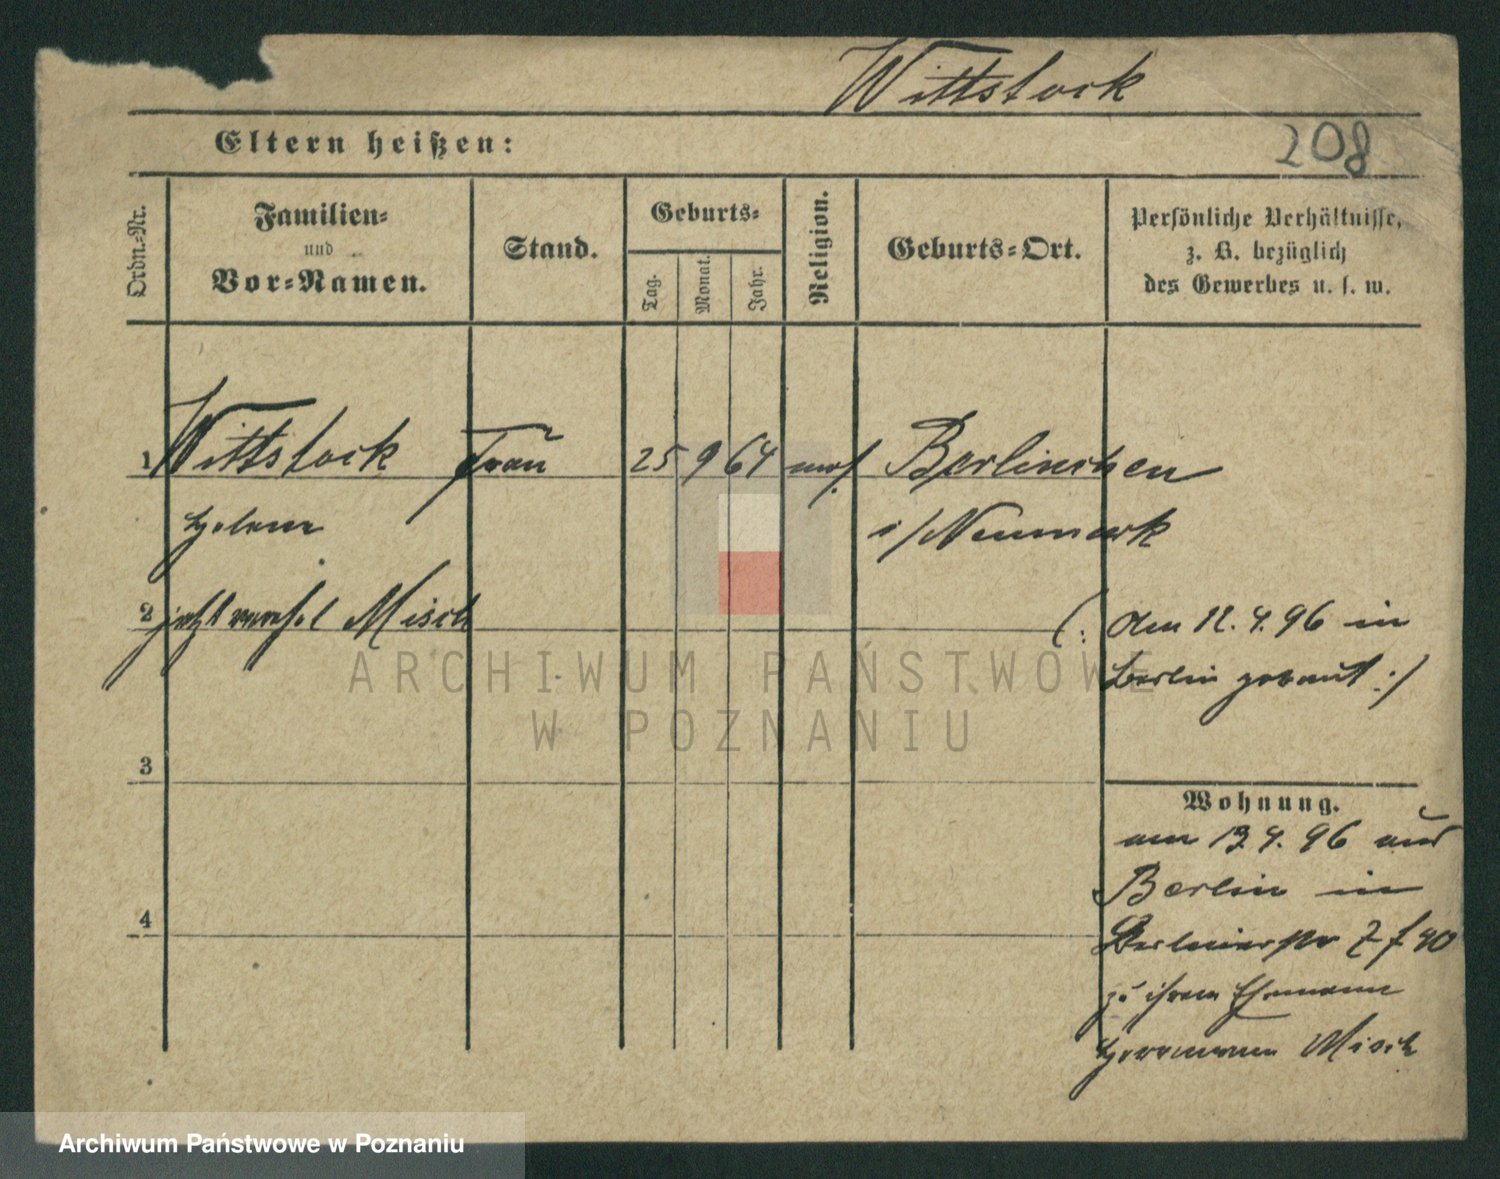 Wittstock
Eltern heißen:
208
Ordn.-Nr.
Familien-
und
Vor-Namen.
Stand.
Geburts-
Tag.
Monat.
Jahr.
Religion.
Geburts-Ort.
Persönliche Verhältnisse,
z. B. bezüglich
des Gewerbes u. s. w.
1 Wittstock Frau 25 9 64 mos. Berlinchen
Helene i/Neumark
2 jetzt verehel Misch (: am 12.4.96 in
Berlin getraut :)
3
Wohnung.
am 13 4. 96 aus
Berlin in
4
Berlinerstr 7 f 40
zu ihrem Ehemann
Herrmann Misch
ARCHIWUM PAŃSTWOWE
W POZNANIU
Archiwum Państwowe w Poznaniu